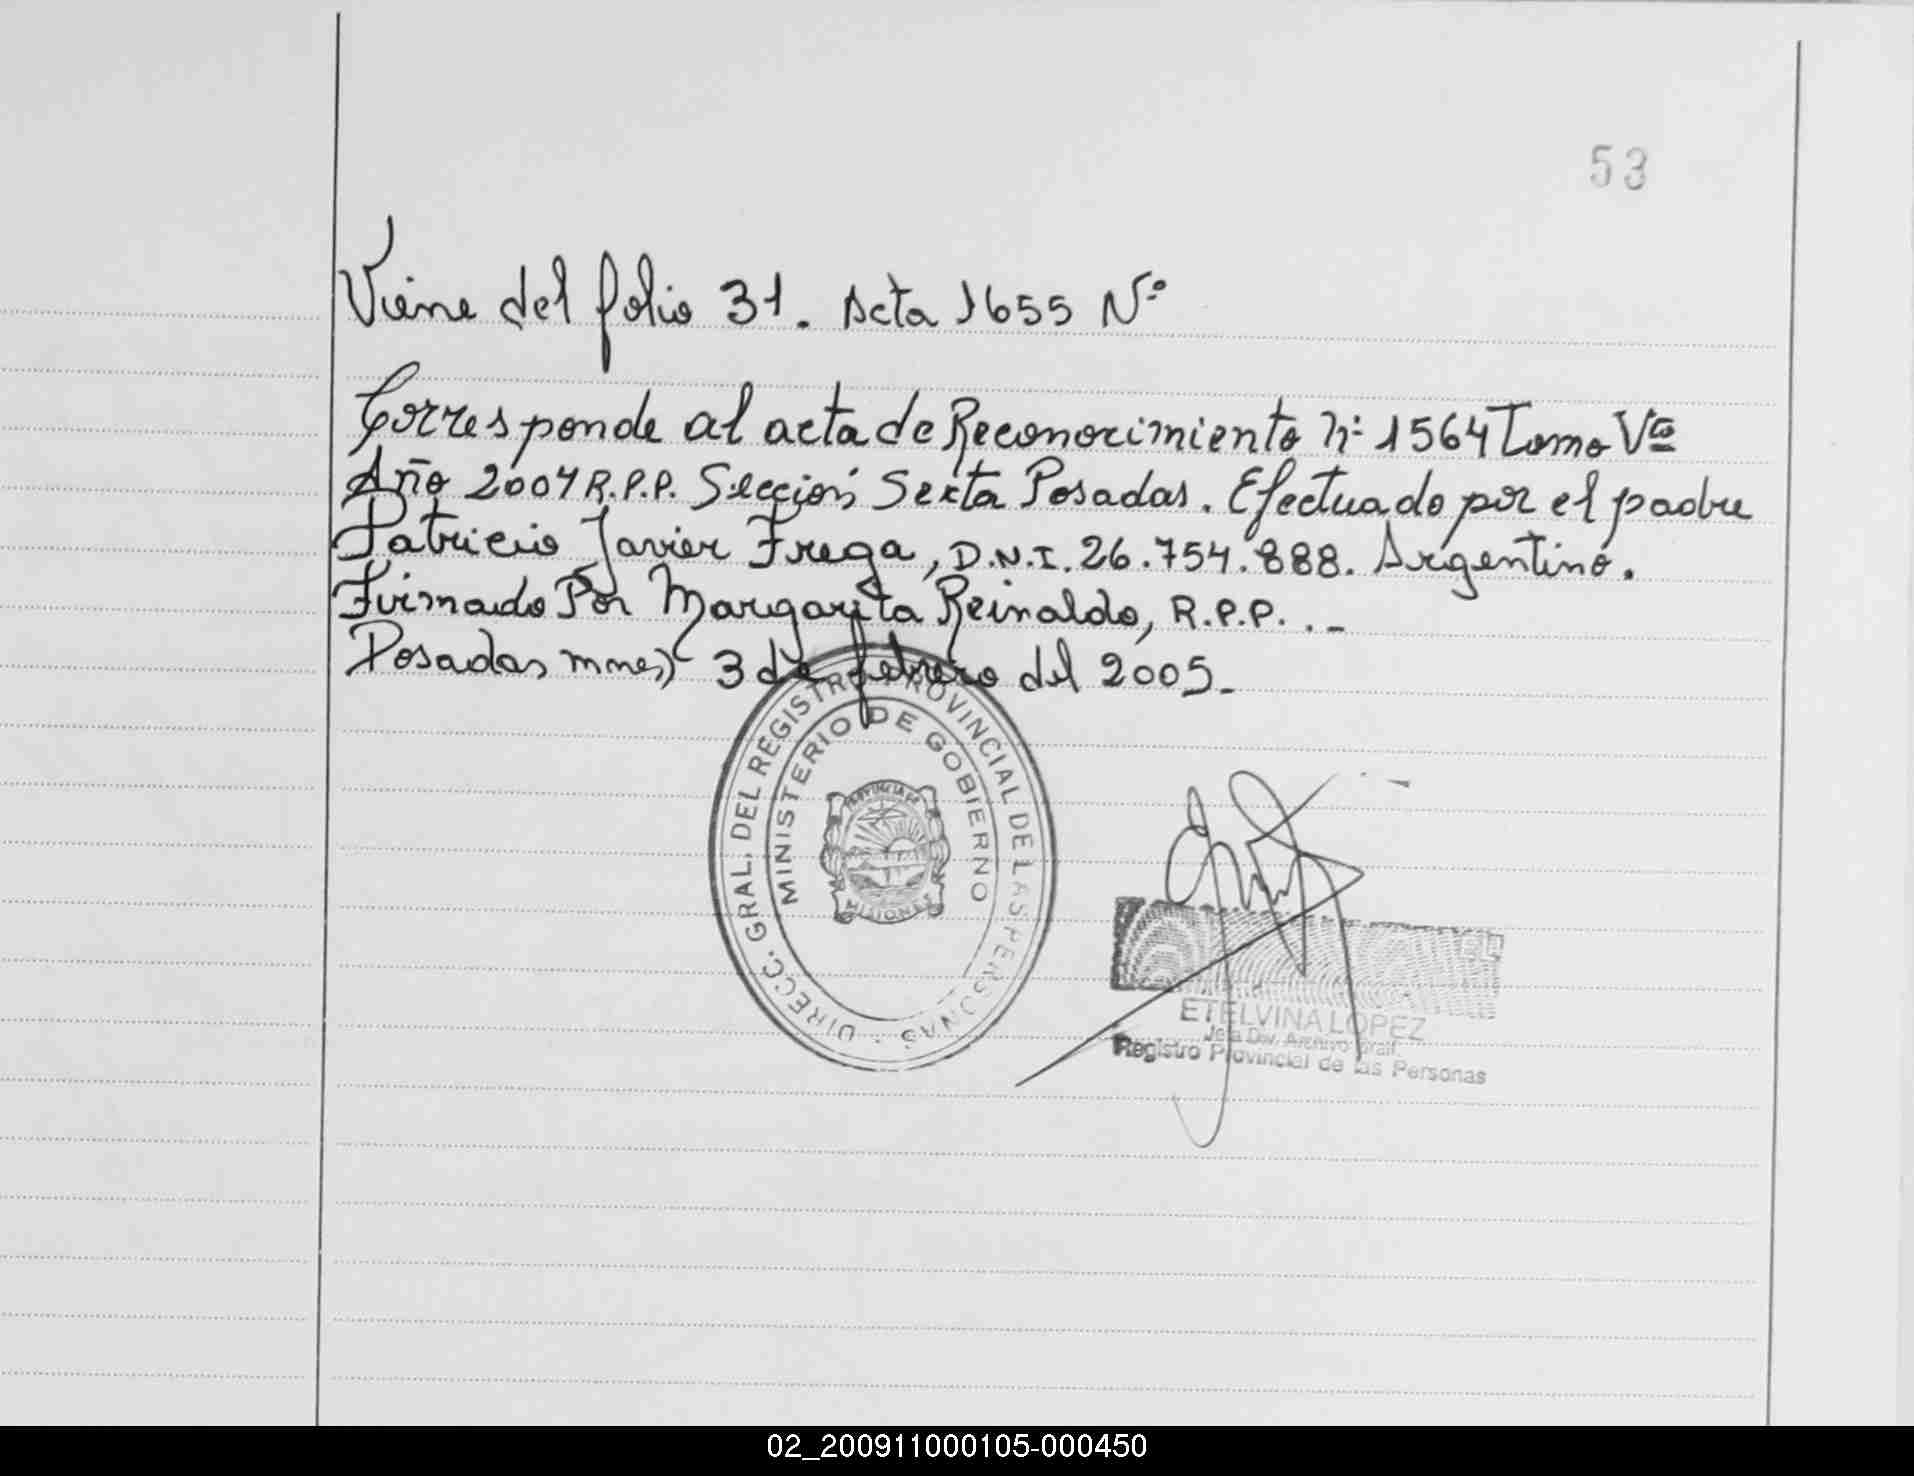 53
Viene del folio 31. Acta 1655 Nº
Corresponde al acta de Reconocimiento Nº 1564 Tomo Vto
Año 2004 R.P.P. Sección Sexta Posadas. Efectuado por el padre
Patricio Javier Frega, D.N.I. 26.754.888. Argentino.
Firmado Por Margarita Reinaldo, R.P.P. . -
Posadas mnes) 3 de febrero del 2005.-
DIRECC. GRAL. DEL REGISTRO PROVINCIAL DE LAS PERSONAS
MINISTERIO DE GOBIERNO
PROVINCIA DE
MISIONES
ETELVINA LOPEZ
Jefa Div. Archivo Gral.
Registro Provincial de las Personas
02_200911000105-000450